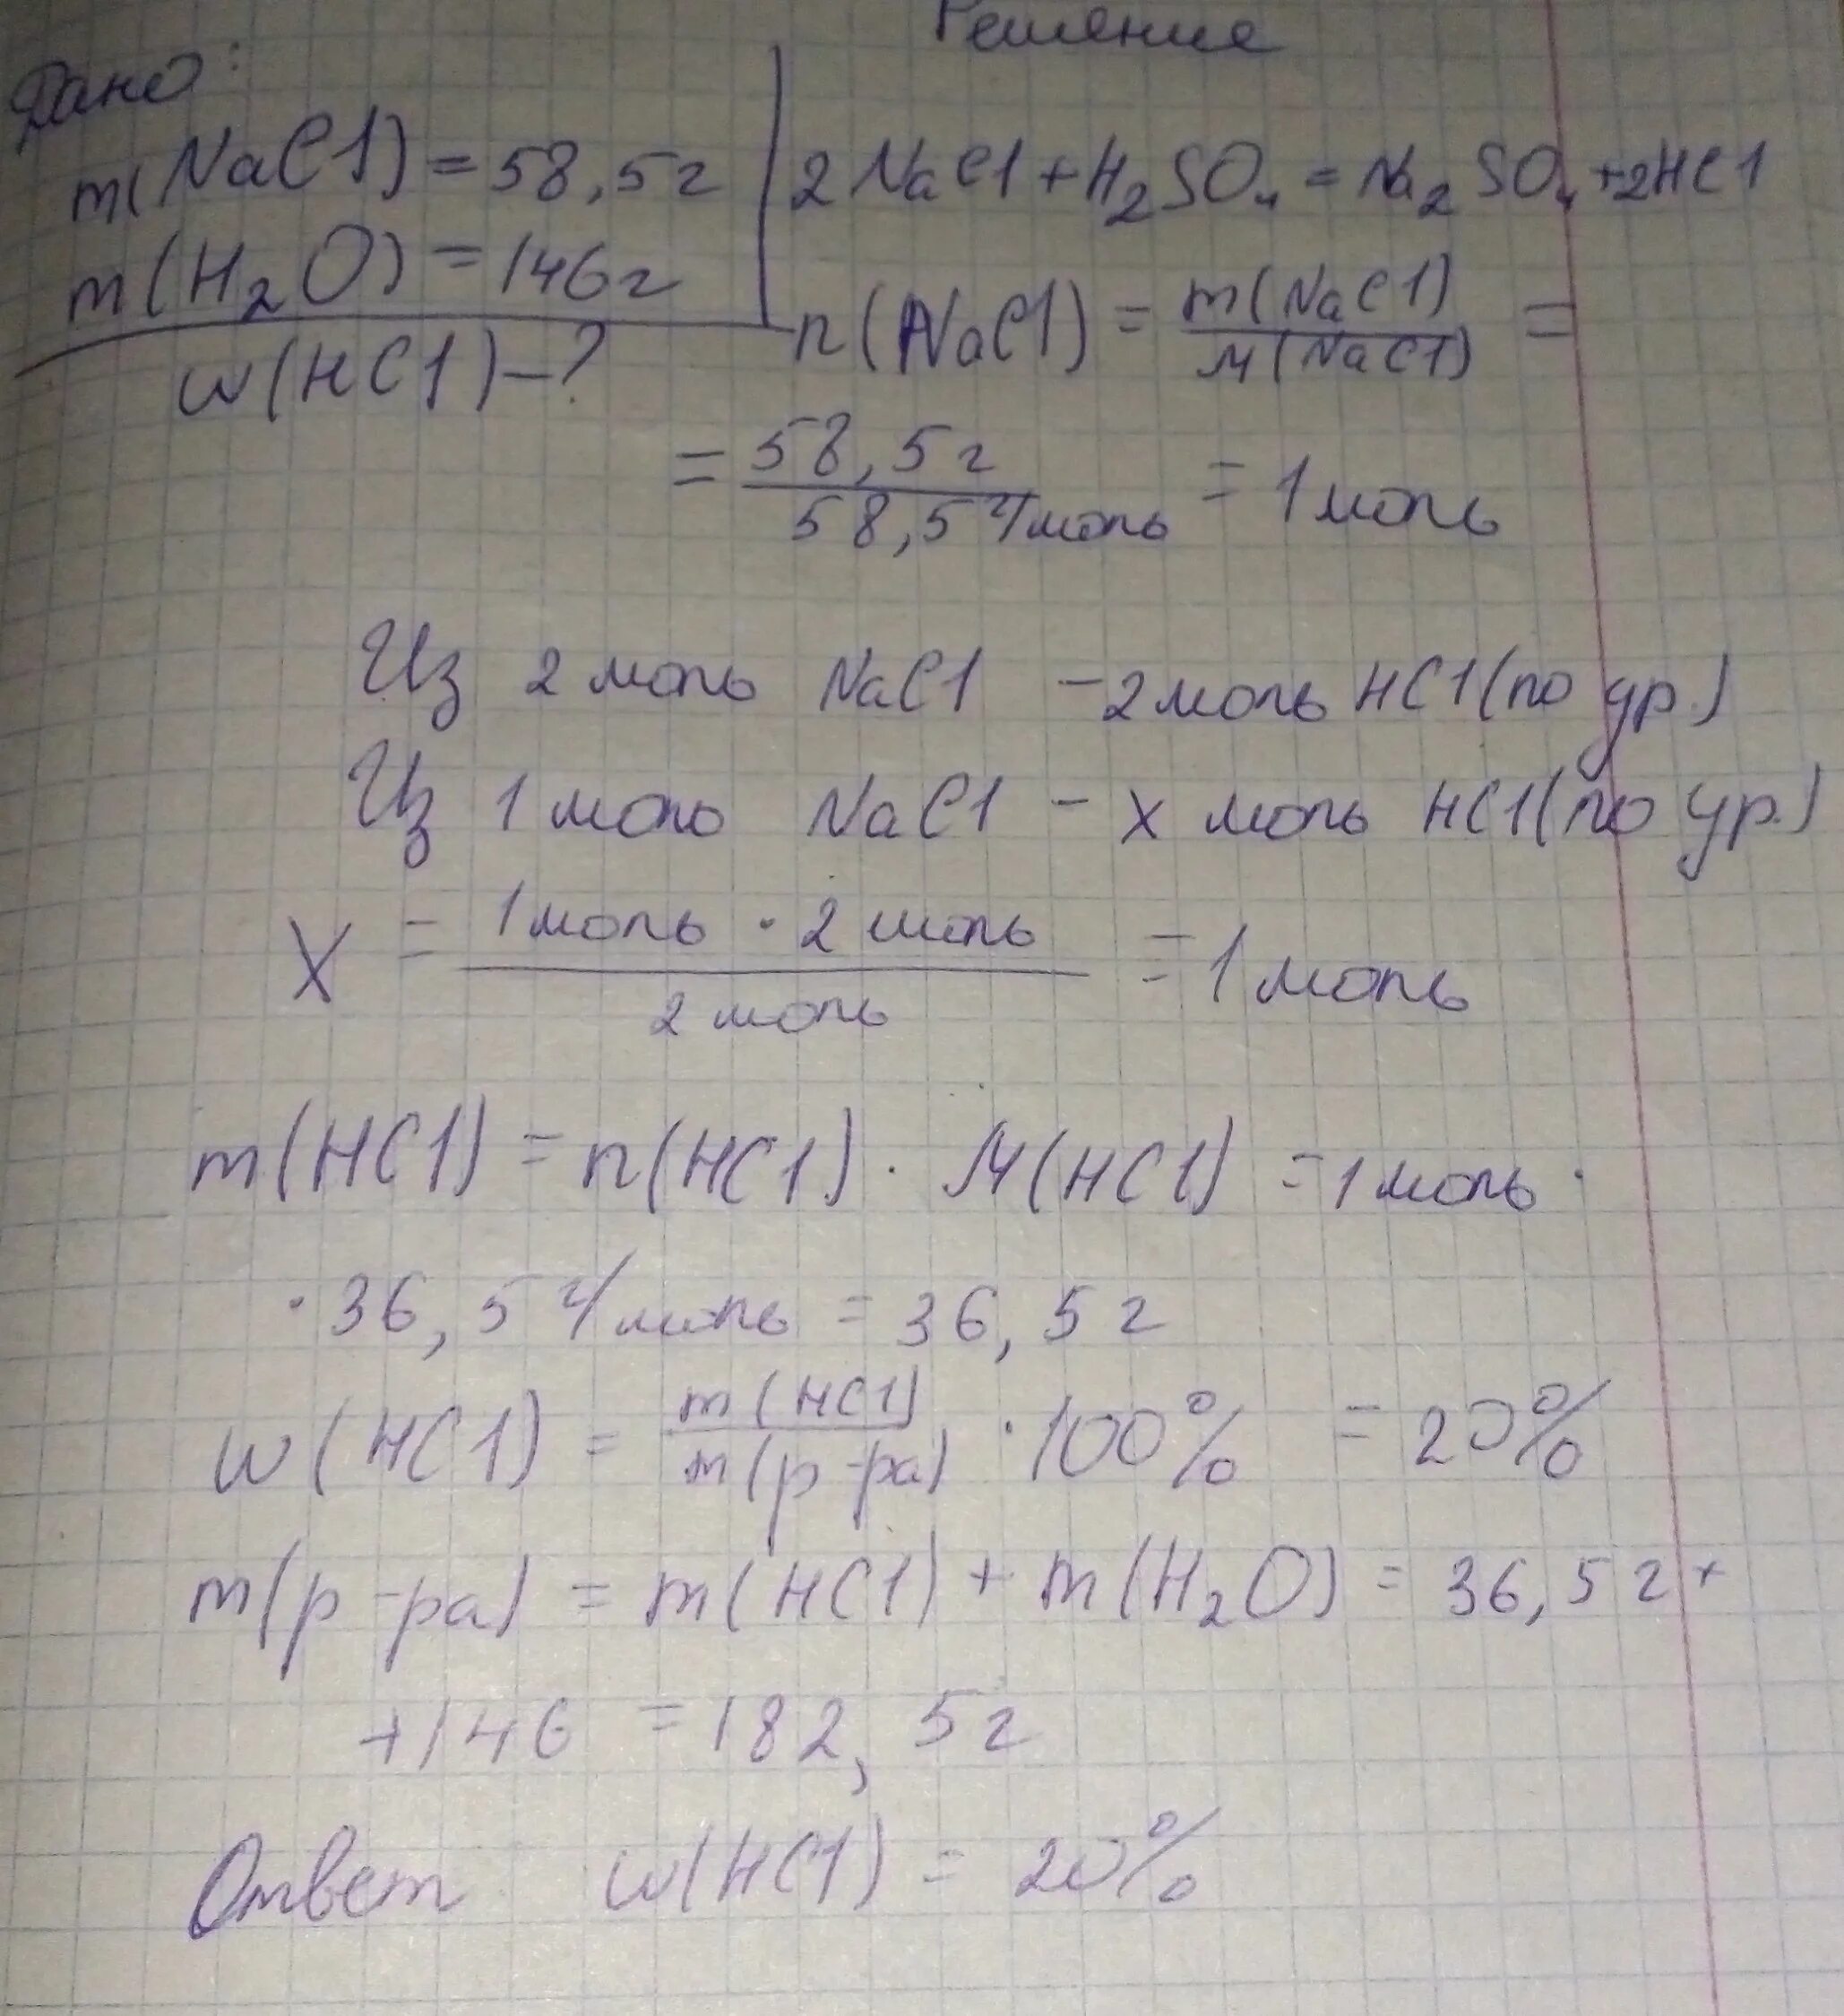 Решение
Дано:
m(NaCl) = 58,5г
m(H₂O) = 146г
w(HCl) - ?
2NaCl + H₂SO₄ = Na₂SO₄ + 2HCl
n(NaCl) = m(NaCl) / M(NaCl) =
= 58,5г / 58,5 г/моль = 1 моль
Из 2 моль NaCl - 2 моль HCl (по ур.)
Из 1 моль NaCl - x моль HCl (по ур.)
X = 1 моль · 2 моль / 2 моль = 1 моль
m(HCl) = n(HCl) · M(HCl) = 1 моль ·
· 36,5 г/моль = 36,5 г
w(HCl) = m(HCl) / m(р-ра) · 100% = 20%
m(р-ра) = m(HCl) + m(H₂O) = 36,5 г +
+ 146 = 182,5 г
Ответ w(HCl) = 20%